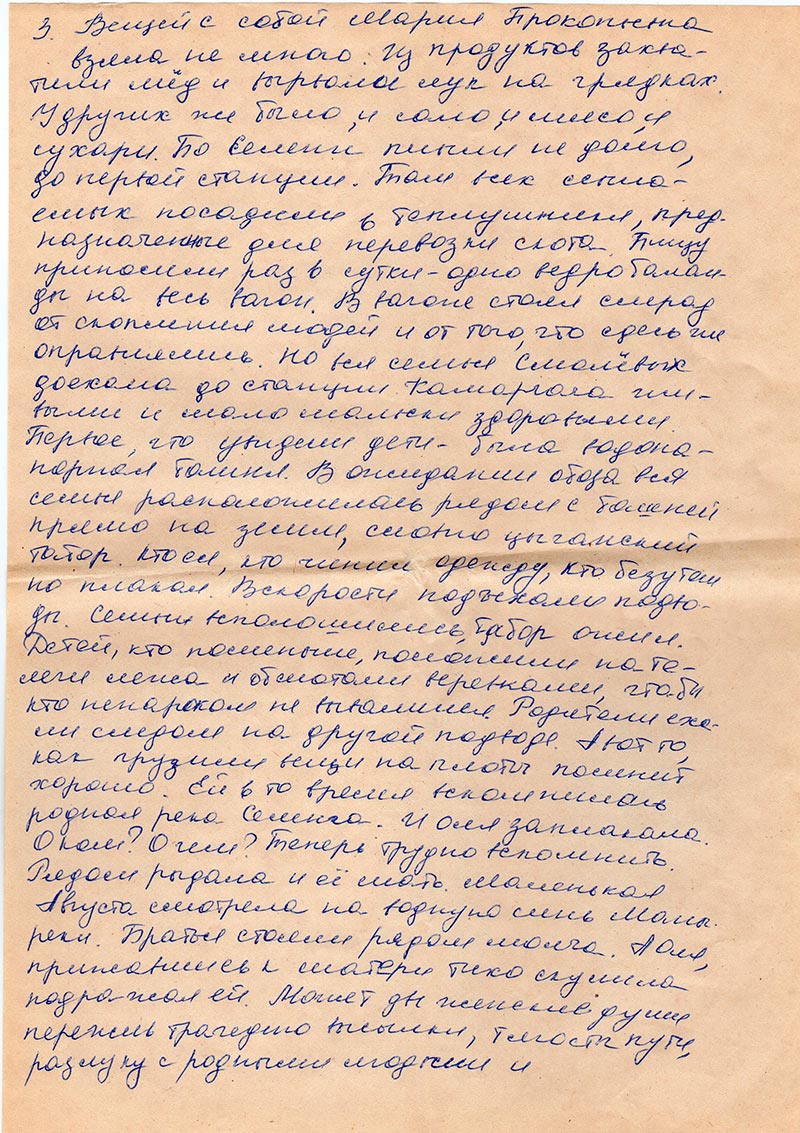 3. Вещей с собой Мария Прокопьевна
взяла не много. Из продуктов захва-
тили мёд и вырвали лук на грядках.
У других же было, и сало, и мясо, и
сухари. По Селенге плыли не долго,
до первой станции. Там всех ссыль-
ных посадили в теплушники, пред-
назначенные для перевозки скота. Пищу
приносили раз в сутки - одно ведро балан-
ды на весь вагон. В вагоне стоял смрад
от скопления людей и от того, что здесь же
оправлялись. Но вся семья Смолёвых
доехала до станции Камарчага жи-
выми и мало мальски здоровыми.
Первое, что увидели дети - была водона-
порная башня. В ожидании обоза вся
семья расположилась рядом с башней
прямо на земле, словно цыганский
табор. Кто ел, кто чинил одежду, кто безутеш
но плакал. Вскорости подъехали подво-
ды. Семьи всполошились, табор ожил.
Детей, кто поменьше, положили на те-
леги лёжа и обмотали веревками, чтобы
кто ненароком не вывалился. Родители еха-
ли следом на другой подводе. А вот то,
как грузили вещи на плоты помнит
хорошо. Ей в то время вспомнилась
родная река Селенга. И Оля заплакала.
О ком? О чем? Теперь трудно вспомнить.
Рядом рыдала и её мать. Маленькая
Августа смотрела на водную синь Маны-
реки. Братья стояли рядом молча. А Оля,
прижавшись к матери тихо скулила
подражая ей. Может две женские души
пережив трагедию высылки, тягость пути,
разлуку с родными людьми и